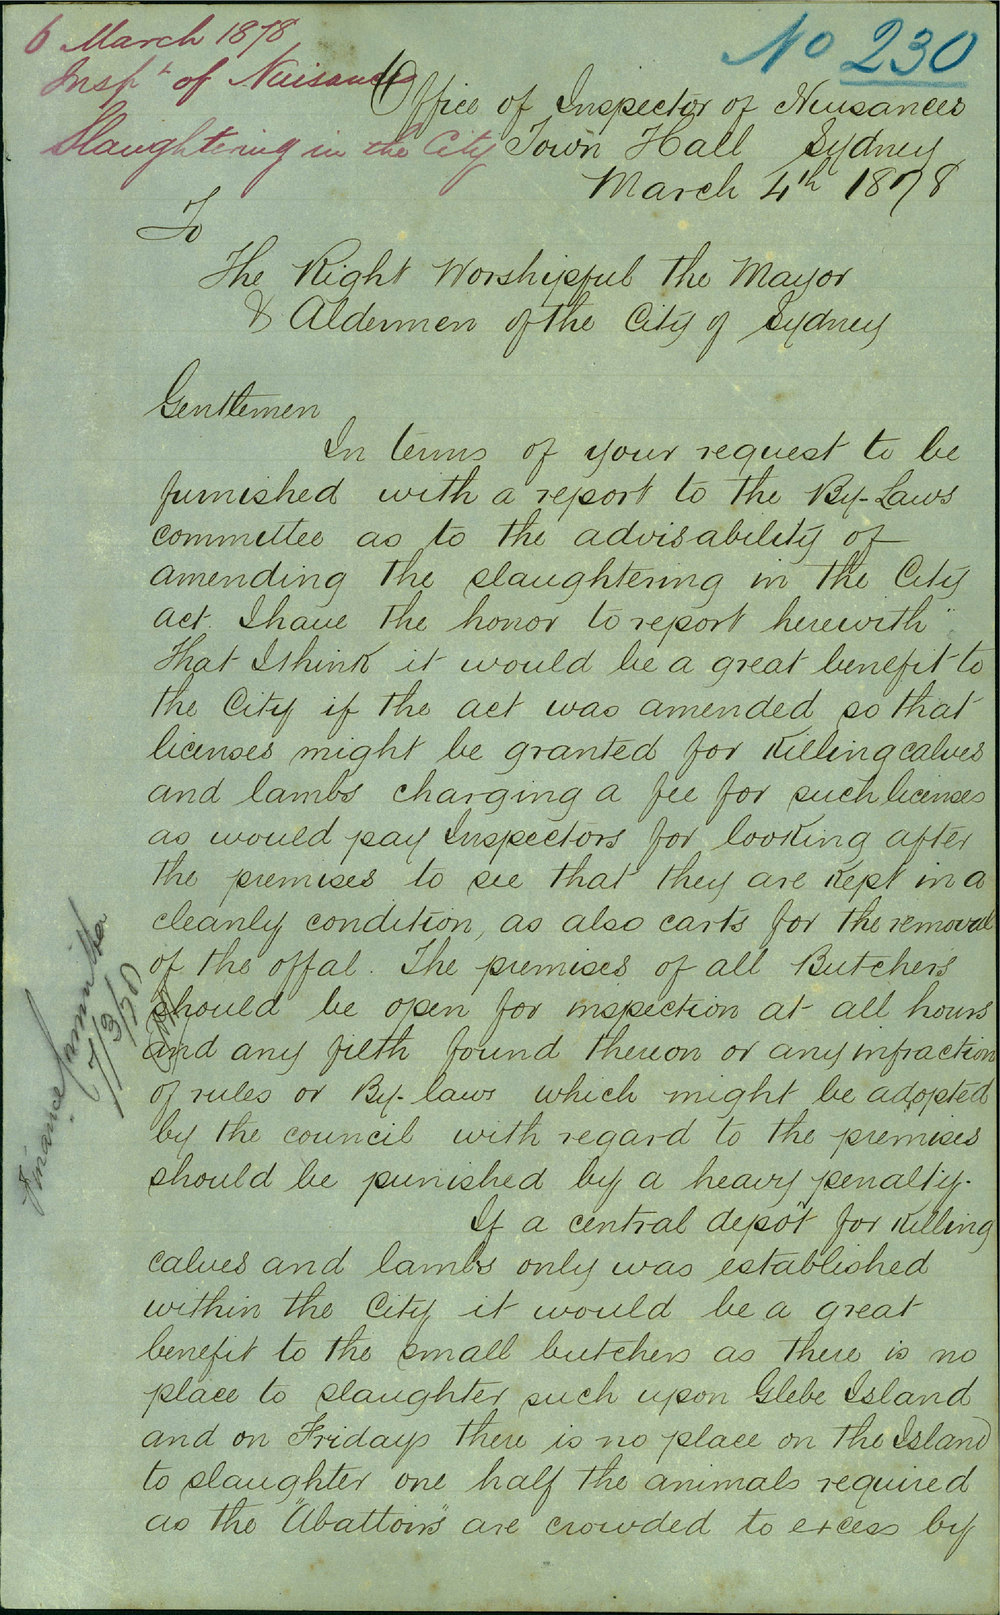 6 March 1878
No 230
Inspr of Nuisances
Slaughtering in the City
Office of Inspector of Nuisances
Town Hall Sydney
March 4th 1878
To
The Right Worshipful the Mayor
& Aldermen of the City of Sydney
Gentlemen
In terms of your request to be
furnished with a report to the By-Laws
committee as to the advisability of
amending the slaughtering in the City
act. I have the honor to report herewith
That I think it would be a great benefit to
the City if the act was amended so that
licenses might be granted for killing calves
and lambs charging a fee for such licenses
as would pay Inspectors for looking after
the premises to see that they are kept in a
cleanly condition, as also carts for the removal
of the offal. The premises of all Butchers
should be open for inspection at all hours
and any filth found thereon or any infraction
of rules or By-laws which might be adopted
by the council with regard to the premises
should be punished by a heavy penalty.
If a central depôt for killing
calves and lambs only was established
within the City it would be a great
benefit to the small butchers as there is no
place to slaughter such upon Glebe Island
and on Fridays there is no place on the Island
to slaughter one half the animals required
as the "Abattoirs" are crowded to excess by
Finance Committee
7/3/78